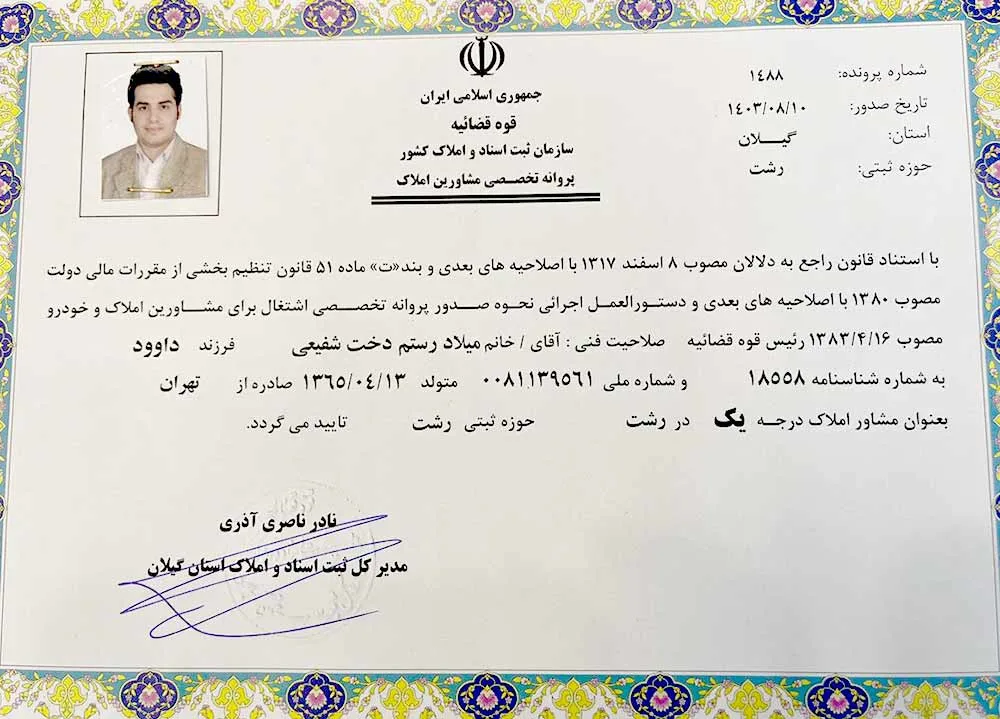 جمهوری اسلامی ایران
قوه قضائیه
سازمان ثبت اسناد و املاک کشور
پروانه تخصصی مشاورین املاک
شماره پرونده: ۱۴۸۸
تاریخ صدور: ۱۴۰۳/۰۸/۱۰
استان: گیلان
حوزه ثبتی: رشت
با استناد قانون راجع به دلالان مصوب ۸ اسفند ۱۳۱۷ با اصلاحیه های بعدی و بند«ت» ماده ۵۱ قانون تنظیم بخشی از مقررات مالی دولت
مصوب ۱۳۸۰ با اصلاحیه های بعدی و دستورالعمل اجرائی نحوه صدور پروانه تخصصی اشتغال برای مشاورین املاک و خودرو
مصوب ۱۳۸۳/۴/۱۶ رئیس قوه قضائیه صلاحیت فنی : آقای / خانم میلاد رستم دخت شفیعی فرزند داوود
به شماره شناسنامه ۱۸۵۵۸ و شماره ملی ۰۰۸۱۱۳۹۵۶۱ متولد ۱۳۶۵/۰۴/۱۳ صادره از تهران
بعنوان مشاور املاک درجه یک در رشت حوزه ثبتی رشت تایید می گردد.
نادر ناصری آذری
مدیر کل ثبت اسناد و املاک استان گیلان